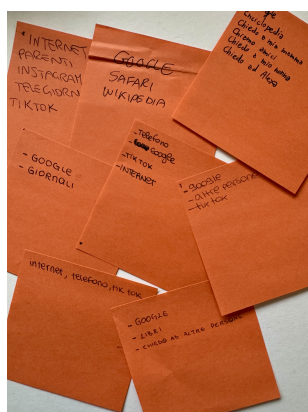 * INTERNET
PARENTI
INSTAGRAM
TELEGIORN
TIKTOK
GOOGLE
SAFARI
WIKIPEDIA
Enciclopedia
Chiedo a mia mamma
Chiamo amici
Chiedo a mio nonno
Chiedo ad Alexa
- GOOGLE
- GIORNALI
- Telefono
- Google
- TIKTOK
- INTERNET
- Google
- altre persone
- tiktok
internet, telefono, tik tok
- GOOGLE
- LIBRI
- CHIEDO AD ALTRE PERSONE